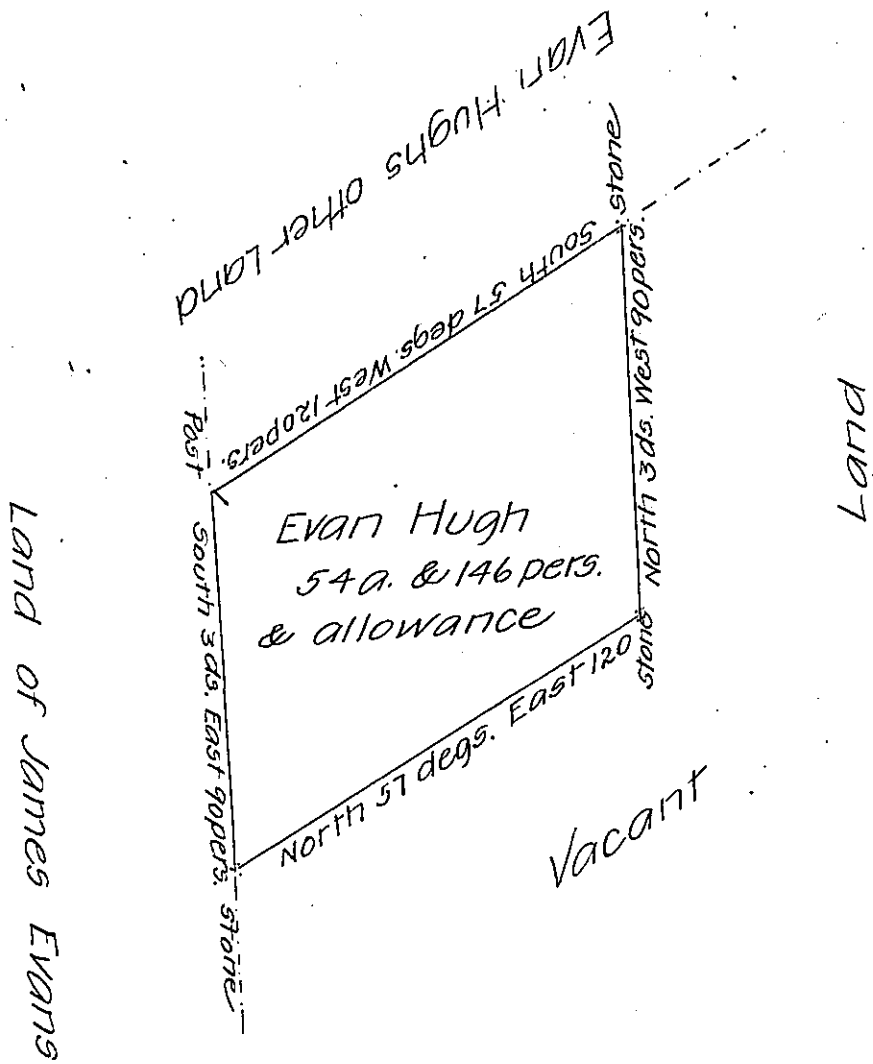 Evan Hughs other Land
stone
South 57 degs. West 120 pers.
North 3 ds. West 90 pers.
Land
Post
Evan Hugh
54 a. & 146 pers.
& allowance
South 3 ds. East 90 pers.
stone
North 57 degs. East 120
stone
Vacant
Land of James Evans